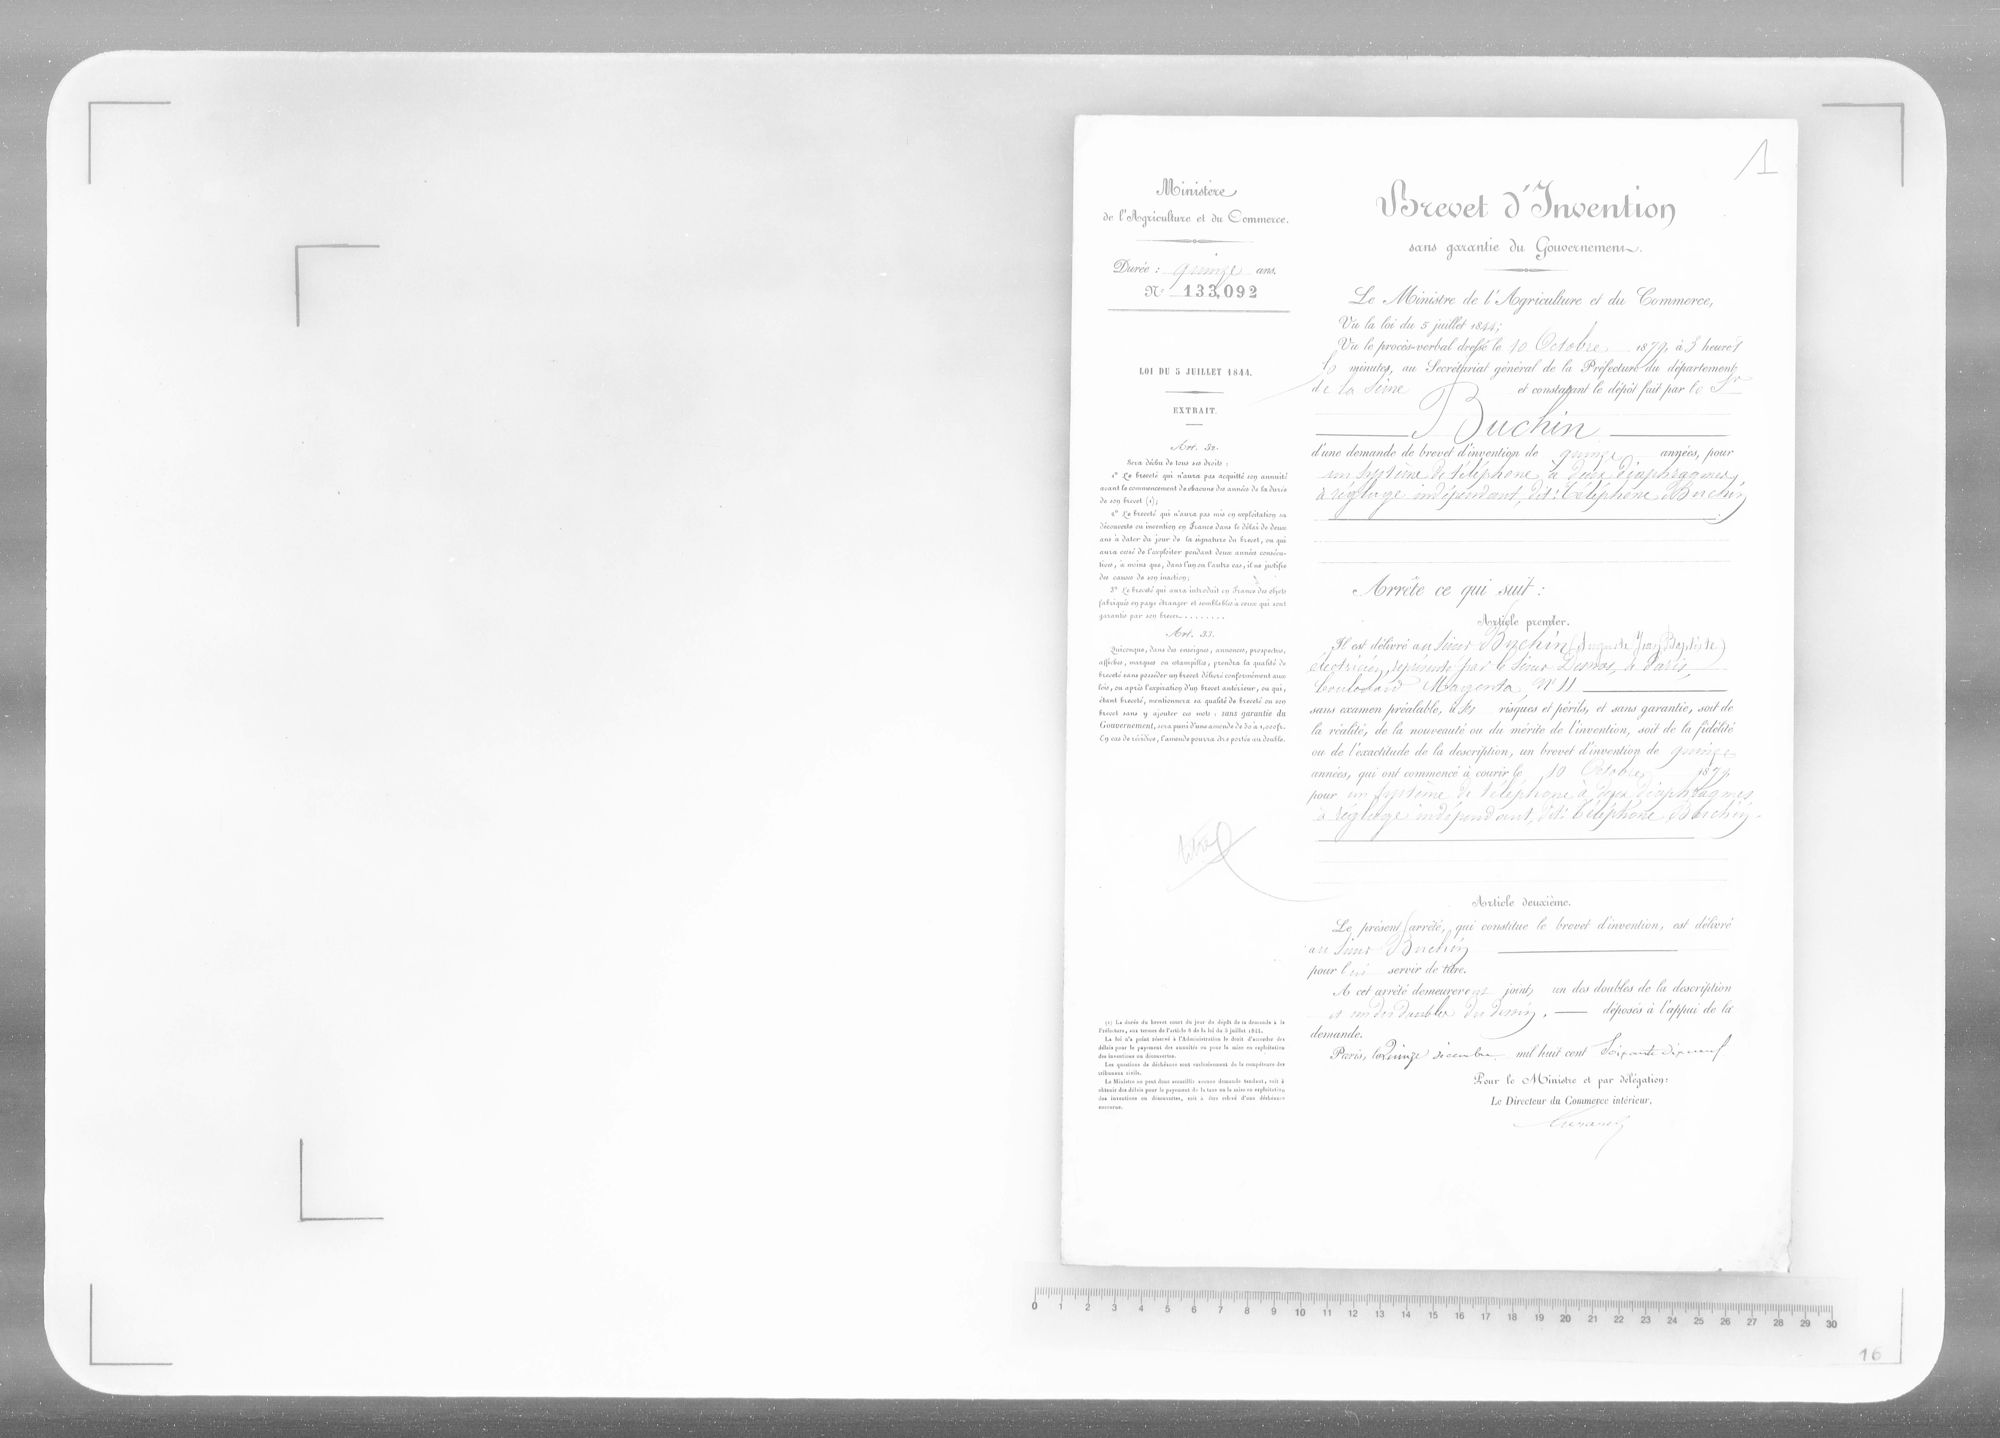 1
Ministère
de l'Agriculture et du Commerce.
Durée : quinze ans.
N° 133,092
LOI DU 5 JUILLET 1844.
EXTRAIT.
Art. 32.
Sera déchu de tous ses droits :
1° Le breveté qui n'aura pas acquitté son annuité
avant le commencement de chacune des années de la durée
de son brevet (1);
2° Le breveté qui n'aura pas mis en exploitation sa
découverte ou invention en France dans le délai de deux
ans à dater du jour de la signature du brevet, ou qui
aura cessé de l'exploiter pendant deux années consécu-
tives, à moins que, dans l'un ou l'autre cas, il ne justifie
des causes de son inaction;
3° Le breveté qui aura introduit en France des objets
fabriqués en pays étranger et semblables à ceux qui sont
garantis par son brevet........
Art. 33.
Quiconque, dans des enseignes, annonces, prospectus,
affiches, marques ou estampilles, prendra la qualité de
breveté sans posséder un brevet délivré conformément aux
lois, ou après l'expiration d'un brevet antérieur, ou qui,
étant breveté, mentionnera sa qualité de breveté ou son
brevet sans y ajouter ces mots : sans garantie du
Gouvernement, sera puni d'une amende de 50 à 1,000 fr.
En cas de récidive, l'amende pourra être portée au double.
(1) La durée du brevet court du jour du dépôt de la demande à la
Préfecture, aux termes de l'article 8 de la loi du 5 juillet 1844.
La loi n'a point réservé à l'Administration le droit d'accorder des
délais pour le payement des annuités ou pour la mise en exploitation
des inventions ou découvertes.
Les questions de déchéance sont exclusivement de la compétence des
tribunaux civils.
Le Ministre ne peut donc accueillir aucune demande tendant, soit à
obtenir des délais pour le payement de la taxe ou la mise en exploitation
des inventions ou découvertes, soit à être relevé d'une déchéance
encourue.
Brevet d'Invention
sans garantie du Gouvernement.
Le Ministre de l'Agriculture et du Commerce,
Vu la loi du 5 juillet 1844;
Vu le procès-verbal dressé le 10 Octobre 1879, à 3 heures
minutes, au Secrétariat général de la Préfecture du département
de la Seine et constatant le dépôt fait par le Sr
Buchin
d'une demande de brevet d'invention de quinze années, pour
un système de téléphone à deux diaphragmes,
à réglage indépendant, dit: téléphone Buchin
Arrête ce qui suit :
Article premier.
Il est délivré au Sieur Buchin (Auguste Jean Baptiste)
électricien, représenté par le Sieur Desnos, à Paris,
boulevard Magenta, N° 11
sans examen préalable, à ses risques et périls, et sans garantie, soit de
la réalité, de la nouveauté ou du mérite de l'invention, soit de la fidélité
ou de l'exactitude de la description, un brevet d'invention de quinze
années, qui ont commencé à courir le 10 Octobre 1879
pour un système de téléphone à deux diaphragmes
à réglage indépendant, dit: téléphone Buchin.
Article deuxième.
Le présent arrêté, qui constitue le brevet d'invention, est délivré
au Sieur Buchin
pour lui servir de titre.
A cet arrêté demeureront joints un des doubles de la description
et un des doubles du dessin, déposés à l'appui de la
demande.
Paris, le Quinze décembre mil huit cent Soixante dix neuf
Pour le Ministre et par délégation:
Le Directeur du Commerce intérieur,
0 1 2 3 4 5 6 7 8 9 10 11 12 13 14 15 16 17 18 19 20 21 22 23 24 25 26 27 28 29 30
16